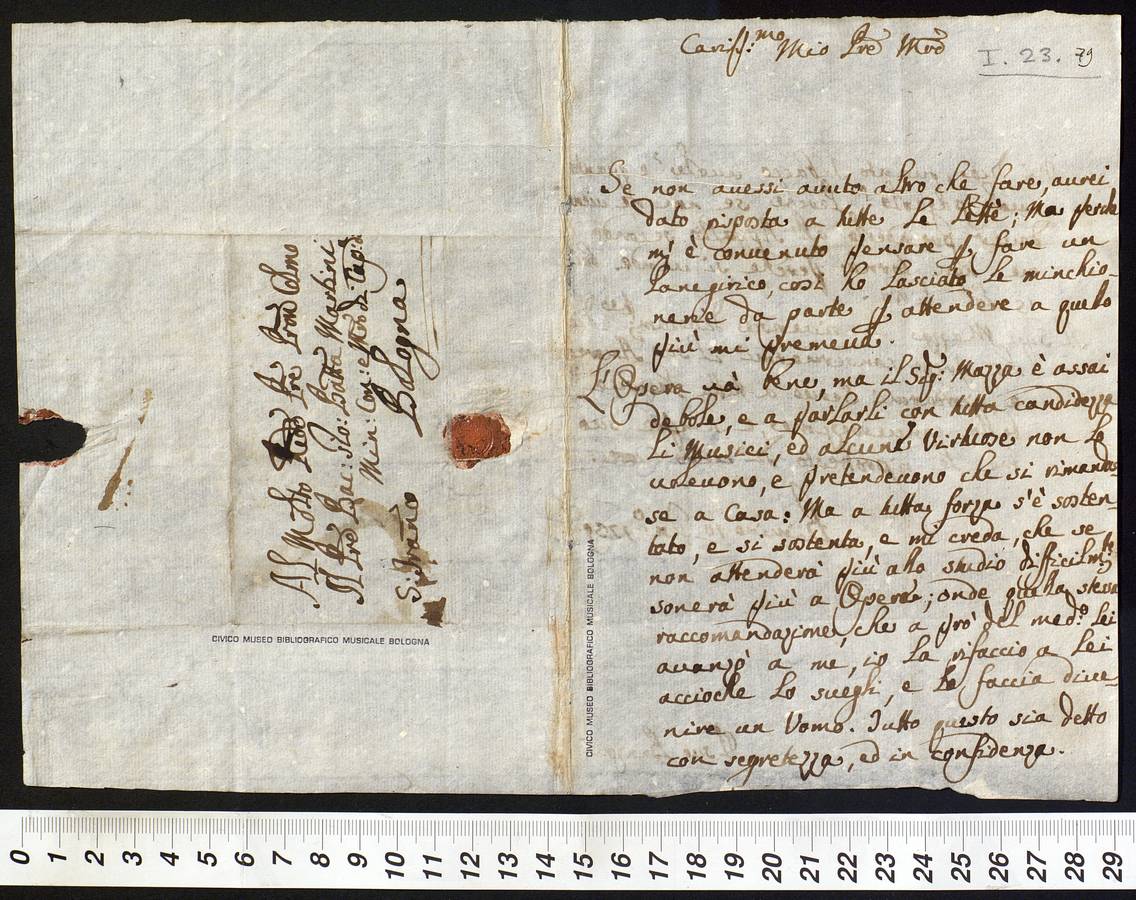 Al Molto Rdo Pre Prone Colmo
Il Pre Bac: Gio: Batta Martini
Min: Con: e Mro di Cap:
Bologna
CIVICO MUSEO BIBLIOGRAFICO MUSICALE BOLOGNA
Cariss:mo Mio Pre Mro
I. 23. 79
Se non auessi auuto altro che fare, aurei
dato risposta a tutte le Lette; Ma perche
m'è conuenuto pensare p fare un
Panegirico, così ho lasciato le minchio-
nerie da parte p attendere a quello
più mi premeua.
L'Opera uà bene, ma il Sig: Mazza è assai
debole, e a parlarli con tutta candidezza
li Musici, ed alcune Virtuose non lo
uoleuono, e pretendeuono che si rimandas
se a Casa: Ma a tutta forza s'è sosten-
tato, e si sostenta, e mi creda, che se
non attenderà più allo studio difficilmte
sonerà più a Opere; onde quella stessa
raccomandazione, che a prò del medo: Lei
auanzò a me, io la rifaccio a Lei
accioche lo suegli, e lo faccia diue-
nire un Uomo. Tutto questo sia detto
con segretezza, ed in confidenza.
CIVICO MUSEO BIBLIOGRAFICO MUSICALE BOLOGNA
0 1 2 3 4 5 6 7 8 9 10 11 12 13 14 15 16 17 18 19 20 21 22 23 24 25 26 27 28 29